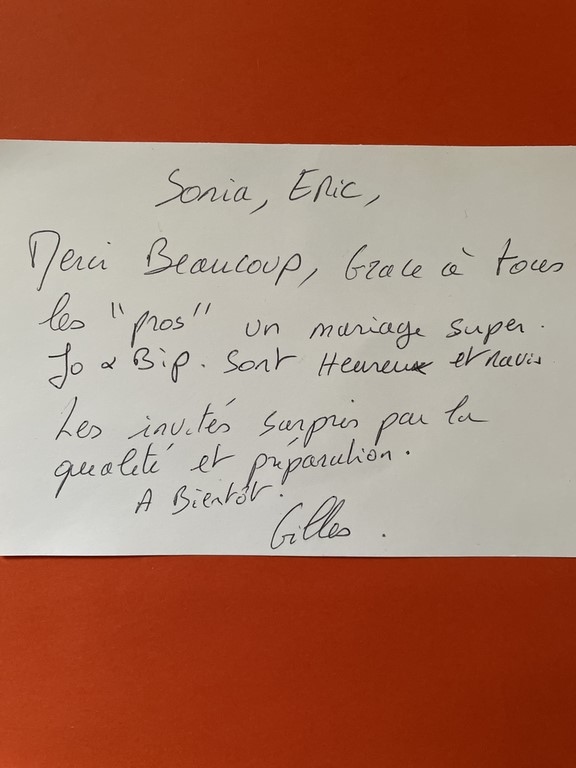 Sonia, Eric,
Merci Beaucoup, Grace à tous
les "pros" un mariage super.
Jo & Bip. sont Heureux et ravis
Les invités surpris par la
qualité et préparation.
A Bientôt.
Gilles.